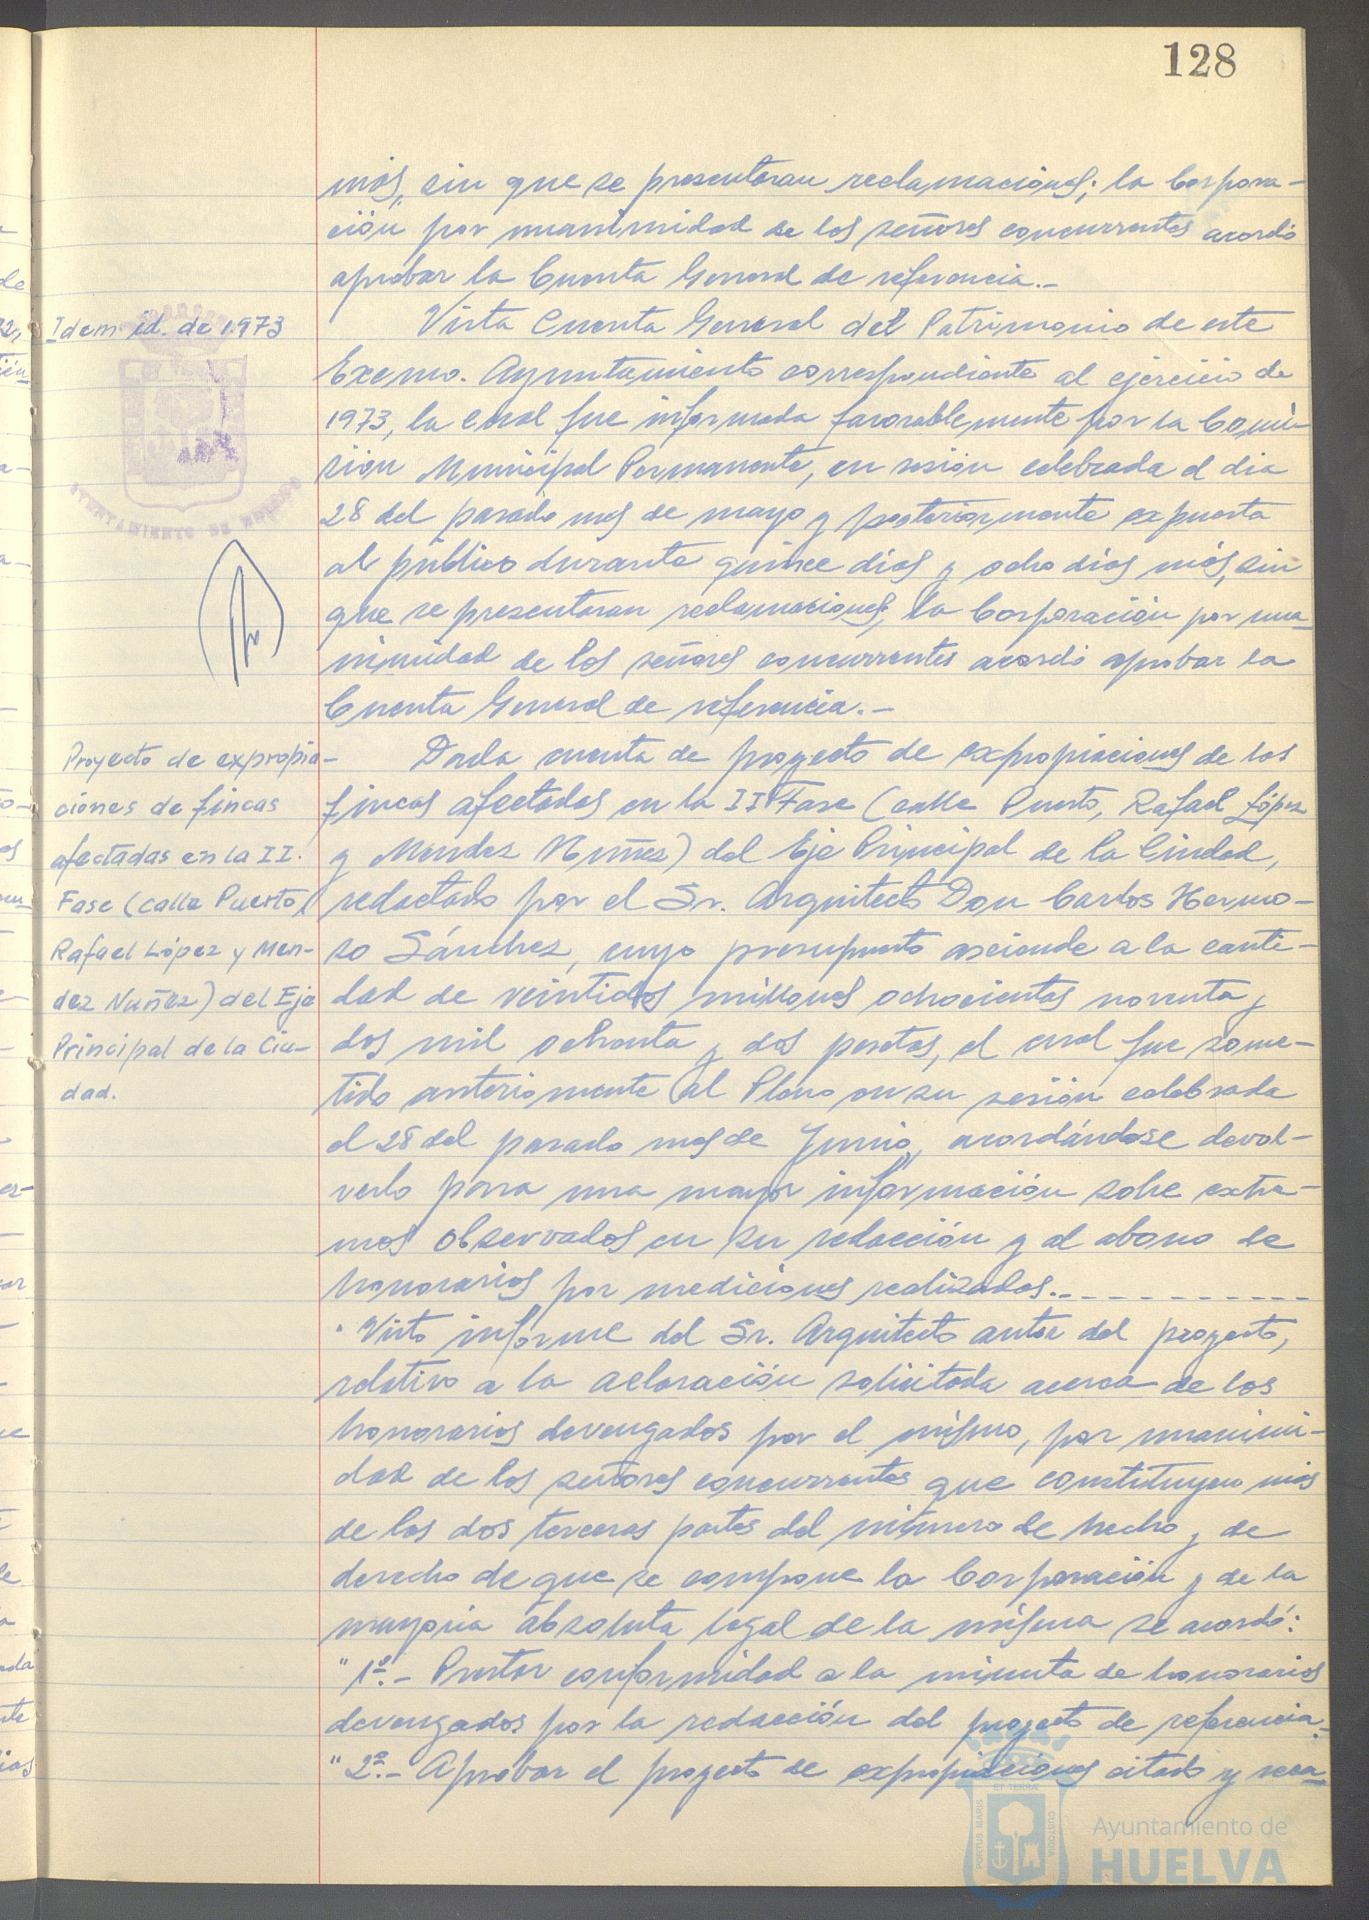 128
más, sin que se presentaran reclamaciones; la Corpora-
ción por unanimidad de los señores concurrentes acordó
aprobar la Cuenta General de referencia.-
Idem id. de 1.973
Vista Cuenta General del Patrimonio de este
Excmo. Ayuntamiento correspondiente al ejercicio de
1973, la cual fue informada favorablemente por la Comi-
sion Municipal Permanente, en sesión celebrada el dia
28 del pasado mes de mayo y posteriormente expuesta
al público durante quince dias y ocho dias más, sin
que se presentaran reclamaciones; la Corporación por una-
nimidad de los señores concurrentes acordó aprobar la
Cuenta General de referencia.-
AYUNTAMIENTO DE HUELVA
Proyecto de expropia-
ciones de fincas
afectadas en la II.
Fase (calle Puerto,
Rafael López y Men-
dez Nuñez) del Eje
Principal de la Ciu-
dad.
Dada cuenta de proyecto de expropiaciones de las
fincas afectadas en la II Fase (calle Puerto, Rafael López
y Mendez Nuñez) del Eje Principal de la Ciudad,
redactado por el Sr. Arquitecto Don Carlos Hermo-
so Sánchez, cuyo presupuesto asciende a la canti-
dad de veintidos millones ochocientas noventa y
dos mil ochenta y dos pesetas, el cual fue some-
tido anteriormente al Pleno en su sesión celebrada
el 28 del pasado mes de Junio, acordándose devol-
verlo para una mayor información sobre extre-
mos observados en su redacción y al abono de
honorarios por mediciones realizadas.-
Visto informe del Sr. Arquitecto autor del proyecto,
relativo a la aclaración solicitada acerca de los
honorarios devengados por el mismo, por unanimi-
dad de los señores concurrentes que constituyen más
de las dos terceras partes del número de hecho y de
derecho de que se compone la Corporación y de la
mayoria absoluta legal de la misma se acordó:
"1º.- Prestar conformidad a la minuta de honorarios
devengados por la redacción del proyecto de referencia.-
"2º.- Aprobar el proyecto de expropiaciones citado y
PORTUS MARIS ET TERRAE CUSTODIA
Ayuntamiento de
HUELVA